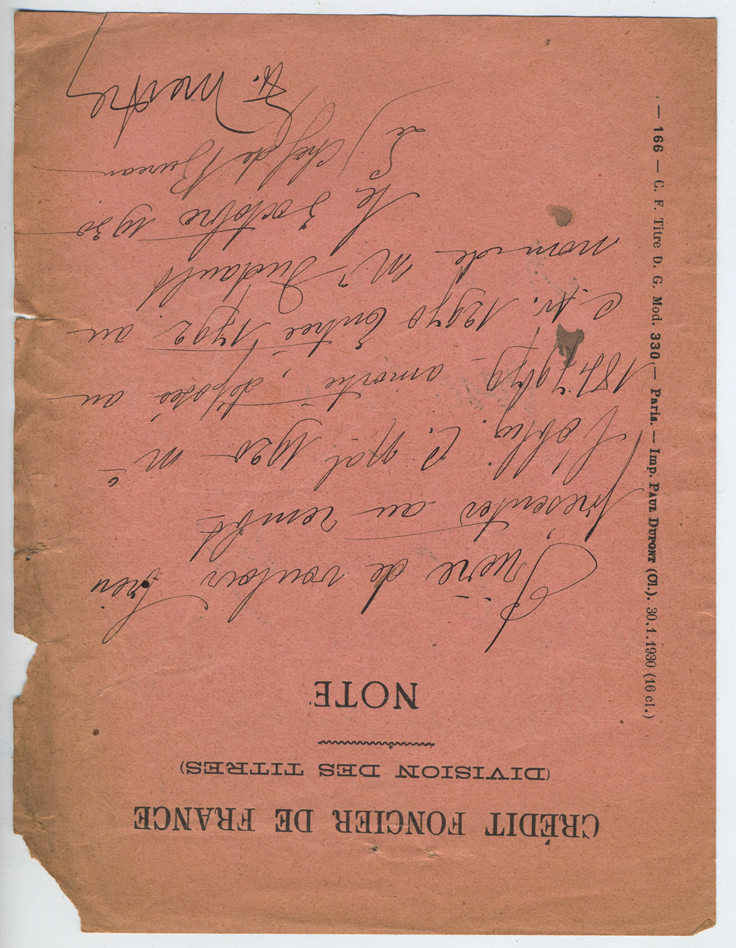 CRÉDIT FONCIER DE FRANCE
(DIVISION DES TITRES)
NOTE
Prière de vouloir bien
présenter au rembt
l'oblig. C. nal 1920 n°
amortie, déposée au
C. Av. 12970 Entrée 1792 au
nom de Mr
le 3 octobre 1930
Le Chef de Bureau
— 166 — C. F. Titre D. G. Mod. 330 — Paris. — Imp. PAUL DUPONT (Cl.). 30.1.1930 (16 cl.)